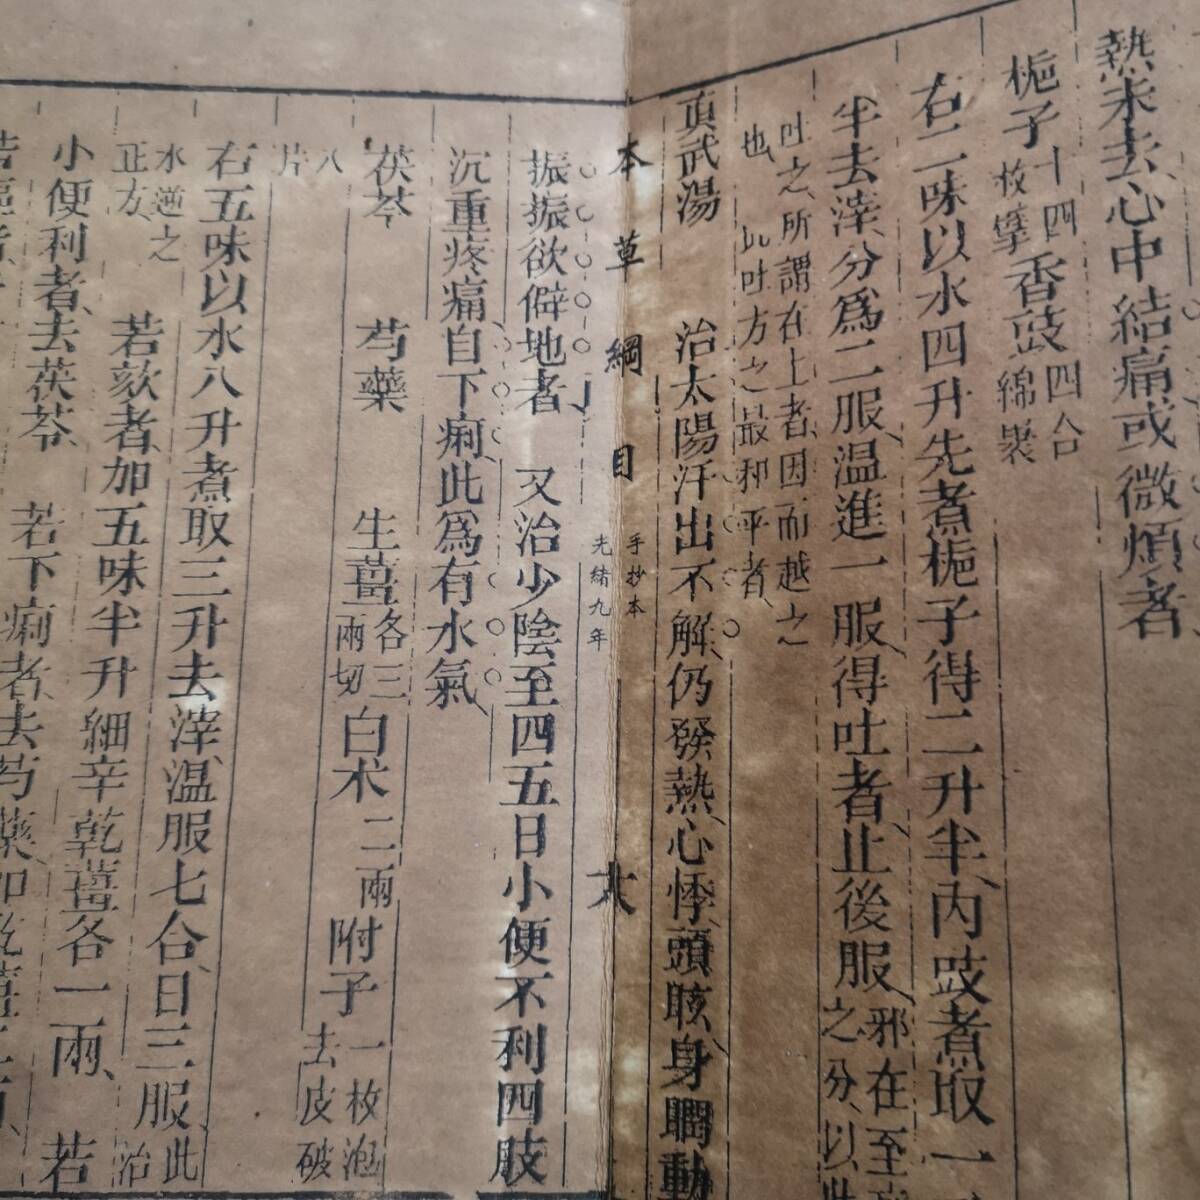 熱未去、心中結痛或微煩者
梔子十四枚擘香豉四合綿裹
右二味以水四升先煮梔子得二升半、內豉煮取一
半去滓、分爲二服、温進一服、得吐者止後服、邪在至
之分、以此
吐之、所謂在上者、因而越之
也、此吐方之最和平者、
真武湯 治太陽汗出不解、仍發熱、心悸、頭眩、身瞤動
本草綱目 手抄本 光緒九年
振振欲僻地者 又治少陰至四五日小便不利四肢
沉重疼痛自下痢、此爲有水氣、
茯苓 芍藥 生薑各三兩切 白术二兩 附子一枚泡去皮破
八片
右五味以水八升煮取三升去滓、温服七合、日三服、此治
水逆之正方、 若欬者、加五味半升細辛乾薑各一兩、若
小便利者、去茯苓、 若下痢者、去芍藥、加乾薑二兩、